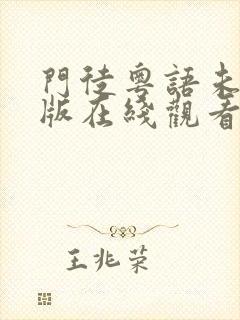 門徒粵語未
版在綫觀看
王兆荣